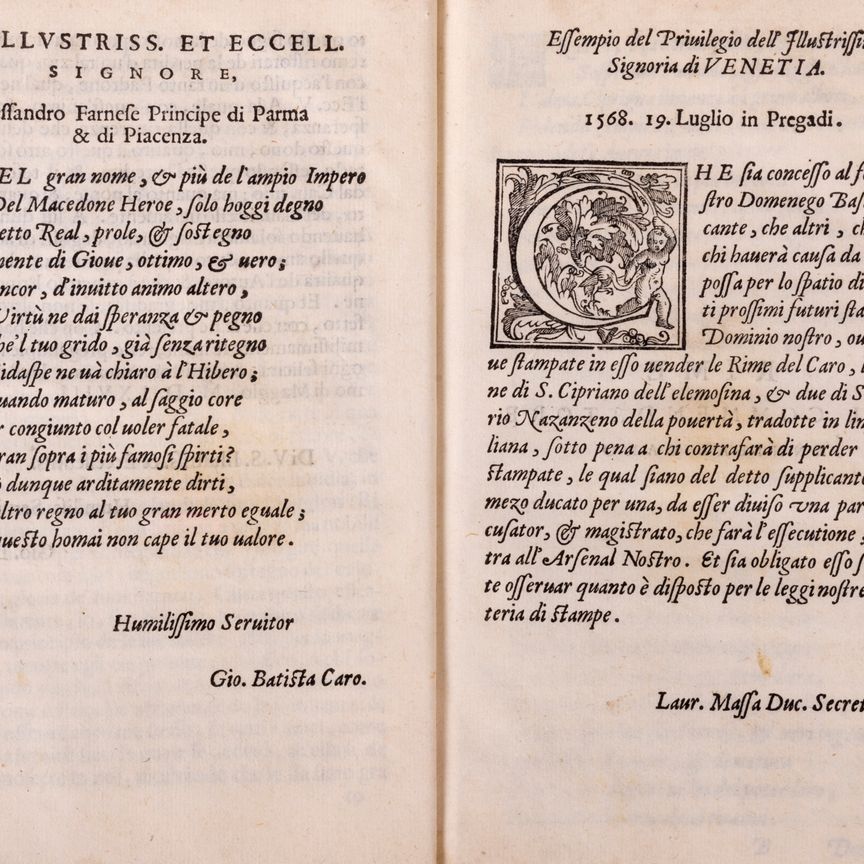 LLVSTRISS. ET ECCELL.
SIGNORE,
ssandro Farnese Principe di Parma
& di Piacenza.
EL gran nome, & più de l'ampio Impero
Del Macedone Heroe, solo hoggi degno
etto Real, prole, & sostegno
mente di Gioue, ottimo, & uero;
ncor, d'inuitto animo altero,
Virtù ne dai speranza & pegno
he'l tuo grido, già senza ritegno
idaspe ne uà chiaro à l'Hibero;
uando maturo, al saggio core
r congiunto col uoler fatale,
ran sopra i più famosi spirti?
dunque arditamente dirti,
ltro regno al tuo gran merto eguale;
uesto homai non cape il tuo ualore.
Humilissimo Seruitor
Gio. Batista Caro.
Essempio del Priuilegio dell'Illustrissi
Signoria di VENETIA.
1568. 19. Luglio in Pregadi.
CHE sia concesso al f
stro Domenego Bas
cante, che altri, ch
chi hauerà causa da
possa per lo spatio di
ti prossimi futuri sta
Dominio nostro, ou
ue stampate in esso uender le Rime del Caro, l
ne di S. Cipriano dell'elemosina, & due di S
rio Nazanzeno della pouertà, tradotte in lin
liana, sotto pena a chi contrafarà di perder
stampate, le qual siano del detto supplicant
mezo ducato per una, da esser diuiso vna par
cusator, & magistrato, che farà l'essecutione,
tra all'Arsenal Nostro. Et sia obligato esso s
te osseruar quanto è disposto per le leggi nostre
teria di stampe.
Laur. Massa Duc. Secret